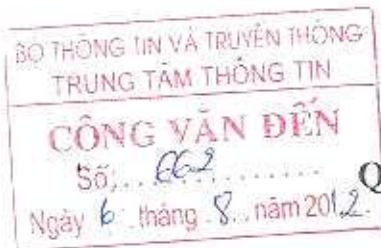 BỘ THÔNG TIN VÀ TRUYỀN THÔNG
TRUNG TÂM THÔNG TIN
CÔNG VĂN ĐẾN
Số:...662...........
Ngày 6 tháng 8 năm 2012.
Q